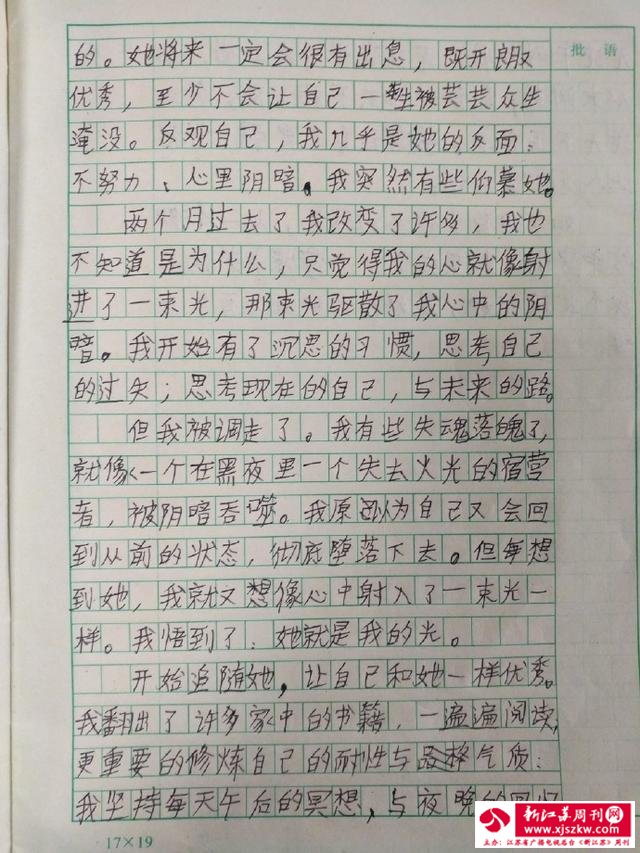 批语
的。她将来一定会很有出息，既开朗又
优秀，至少不会让自己一生被芸芸众生
淹没。反观自己，我几乎是她的反面：
不努力、心里阴暗。我突然有些仰慕她。
两个月过去了我改变了许多，我也
不知道是为什么，只觉得我的心就像射
进了一束光，那束光驱散了我心中的阴
暗。我开始有了沉思的习惯，思考自己
的过失；思考现在的自己，与未来的路。
但我被调走了。我有些失魂落魄了，
就像一个在黑夜里一个失去火光的宿营
者，被阴暗吞噬。我原以为自己又会回
到从前的状态，彻底堕落下去。但每想
到她，我就又想像心中射入了一束光一
样。我悟到了：她就是我的光。
开始追随她，让自己和她一样优秀。
我翻出了许多家中的书籍，一遍遍阅读，
更重要的修炼自己的耐性与品格气质：
我坚持每天午后的冥想，与夜晚的回忆
17×19
新江苏周刊网
www.xjszkw.com
主办：江苏省广播电视总台《新江苏》周刊